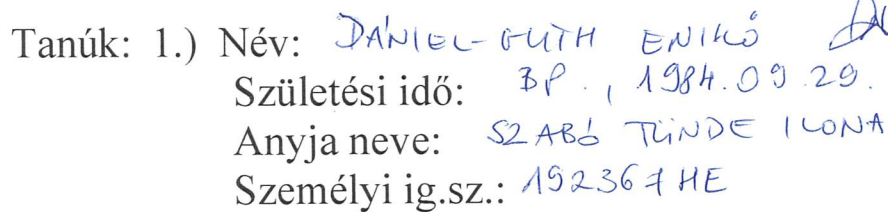 Tanúk: 1.) Név: DÁNIEL-GUTH ENIKŐ
Születési idő: BP., 1984.09.29.
Anyja neve: SZABÓ TÜNDE ILONA
Személyi ig.sz.: 192367HE